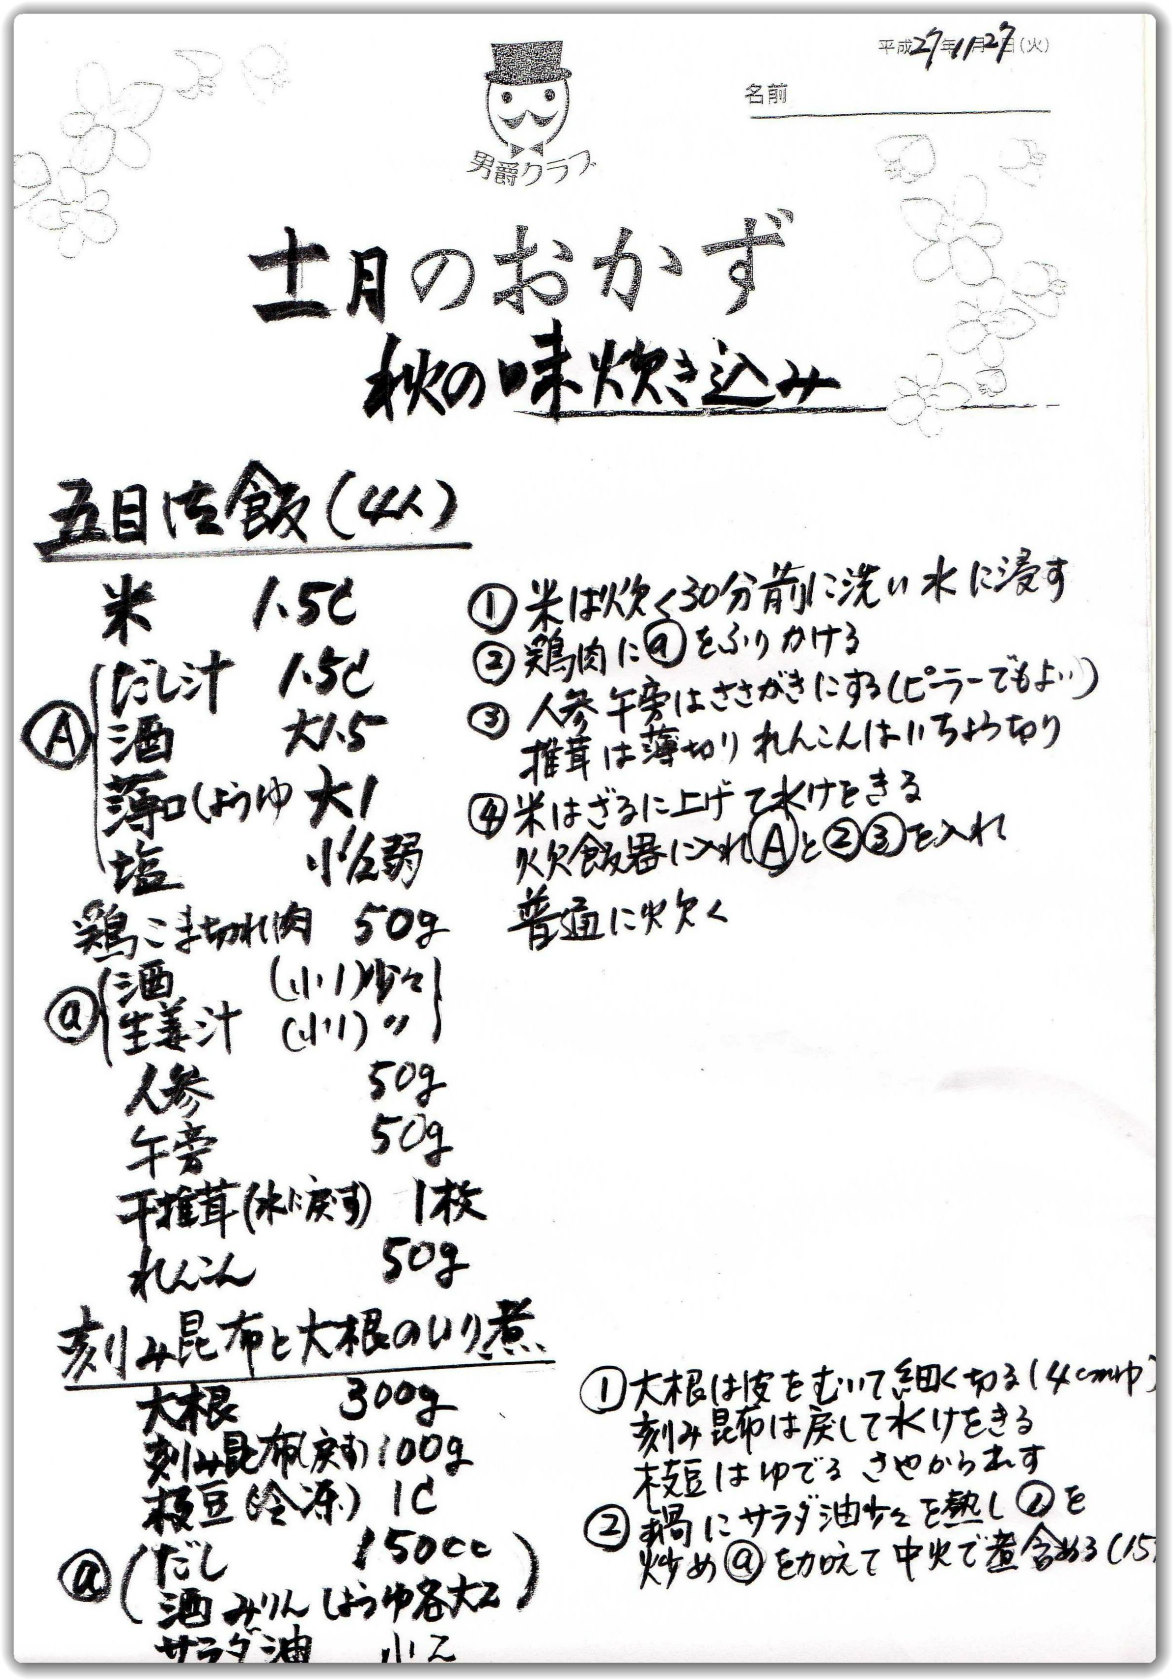 平成27年11月27日(火)
名前
男爵クラブ
十一月のおかず
秋の味炊き込み
五目御飯(4人)
米 1.5C
Ⓐ
だし汁 1.5C
酒 大1.5
薄口しょうゆ 大1
塩 小1/2弱
鶏こま切れ肉 50g
ⓐ
酒 (小1)少々
生姜汁 (小1) 〃
人参 50g
午旁 50g
干推茸(水に戻す) 1枚
れんこん 50g
① 米は炊く30分前に洗い水に浸す
② 鶏肉にⓐをふりかける
③ 人参午旁はささがきにする(ピーラーでもよい)
推茸は薄切りれんこんはいちょう切り
④ 米はざるに上げて水けをきる
炊飯器に入れⒶと②③を入れ
普通に炊く
刻み昆布と大根のいり煮
大根 300g
刻み昆布(戻す)100g
枝豆(冷凍) 1C
ⓐ
だし 150cc
酒みりんしょうゆ各大2
サラダ油 小2
① 大根は皮をむいて細く切る(4cmゆ)
刻み昆布は戻して水けをきる
枝豆はゆでる さやから出す
② 鍋にサラダ油少々を熱し①を
炒めⓐを加えて中火で煮含める(15